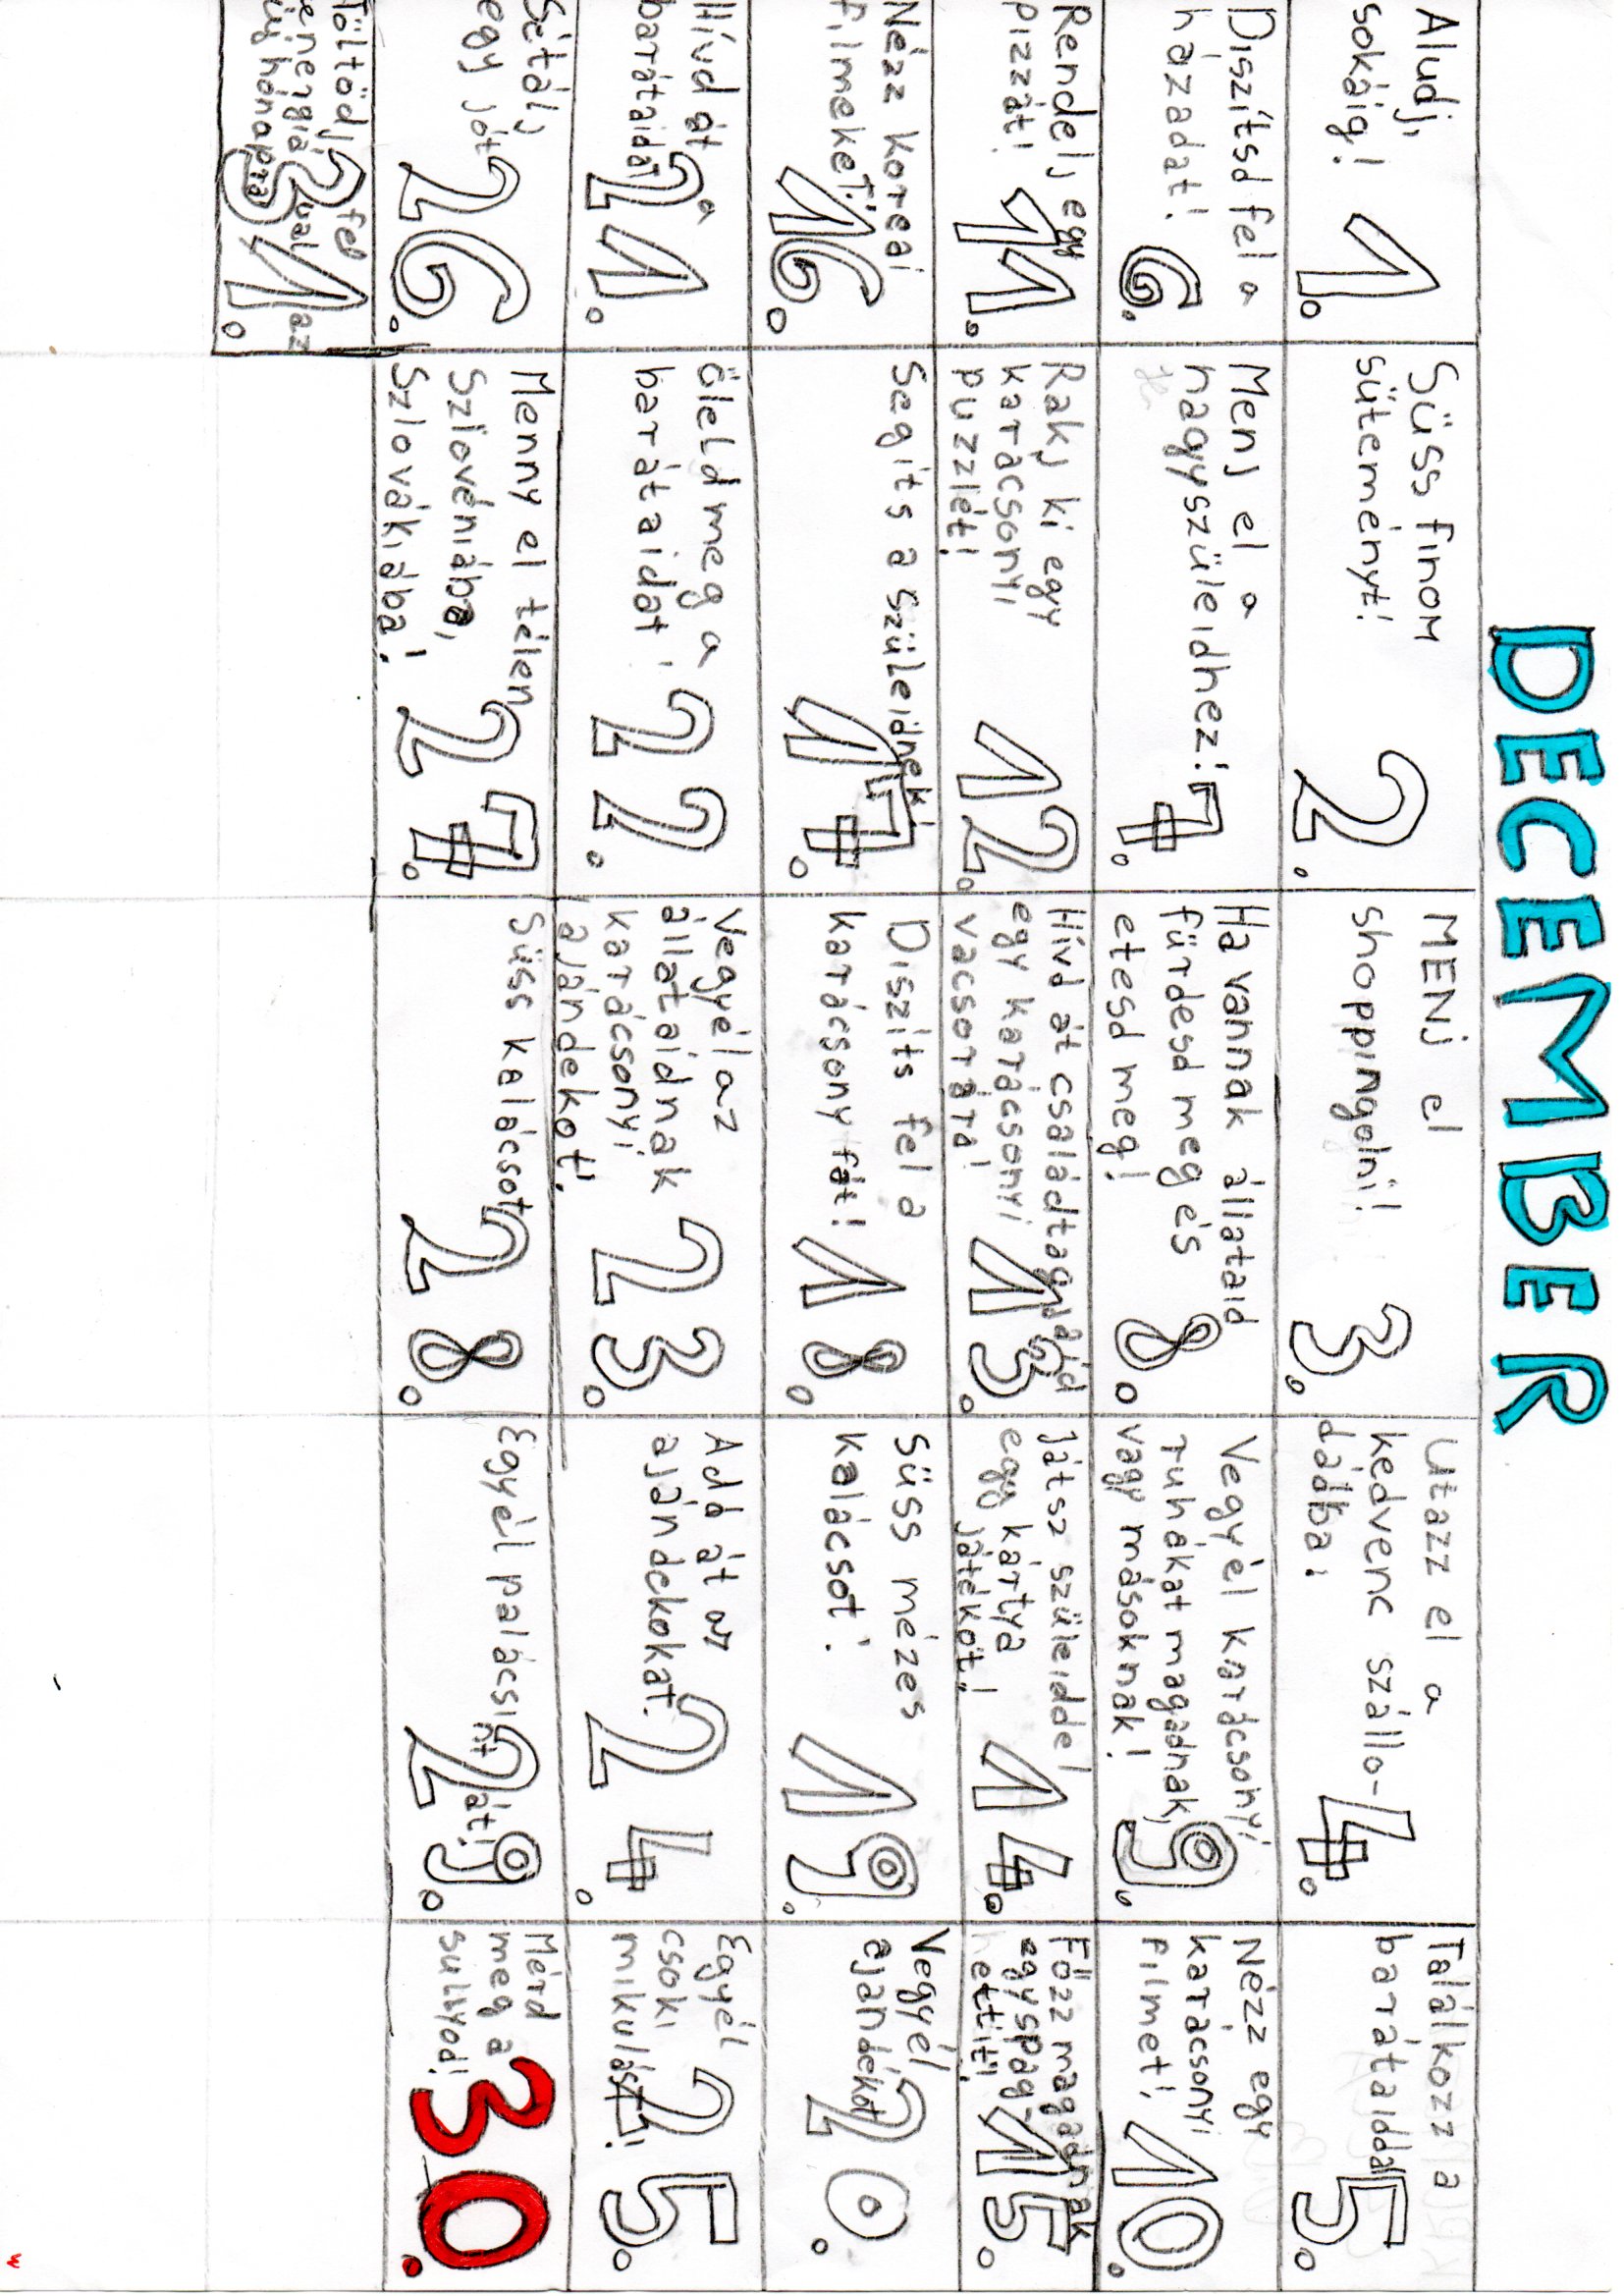 DECEMBER
Aludj,
sokáig!
1.
Süss finom
süteményt!
2.
MENj el
shoppingolni!
3.
Utazz el a
kedvenc szállo-
dádba!
4.
Találkozz a
barátaiddal
5.
Díszítsd fel a
házadat!
6.
Menj el a
nagyszüleidhez!
7.
Ha vannak állataid
fürdesd meg és
etesd meg!
8.
Vegyél karácsonyi
ruhákat magadnak,
vagy másoknak!
9.
Nézz egy
karácsonyi
filmet!
10.
Rendelj egy
pizzát!
11.
Rakj ki egy
karácsonyi
puzzlét!
12.
Hívd át családtagjaid
egy karácsonyi
vacsorára!
13.
játsz szüleiddel
egy kártya
játékot!
14.
Főzz magadnak
egy spag-
hettit!
15.
Nézz koreai
filmeket!
16.
Segíts a szüleidnek!
17.
Díszíts fel a
karácsony fát!
18.
Süss mézes
kalácsot!
19.
Vegyél
ajándékot
20.
Hívd át a
barátaidat
21.
öleld meg a
barátaidat!
22.
Vegyél az
állataidnak
karácsonyi
ajándékot!
23.
Add át az
ajándekokat.
24.
Egyél
csoki
mikulást!
25.
Sétálj
egy jót
26.
Menny el télen
Szlovéniába,
Szlovákiába!
27.
Süss kalácsot
28.
Egyél palácsintát!
29.
Mérd
meg a
sulyod!
30.
Töltödj fel
energiával az
új hónapra
31.